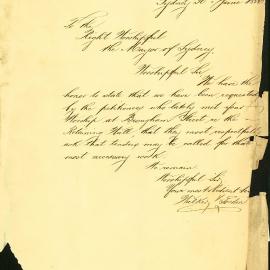 Sydney 30 June 188
To the
Right Worshipful
the Mayor of Sydney,
Worshipful Sir
We have the
honor to state that we have been requested
by the petitioners who lately met your
Worship at Brougham Street in the
Retaining Wall, that they most respectfully
ask that tenders may be called for that
most necessary work
We remain
Worshipful Sir
Your most obedient